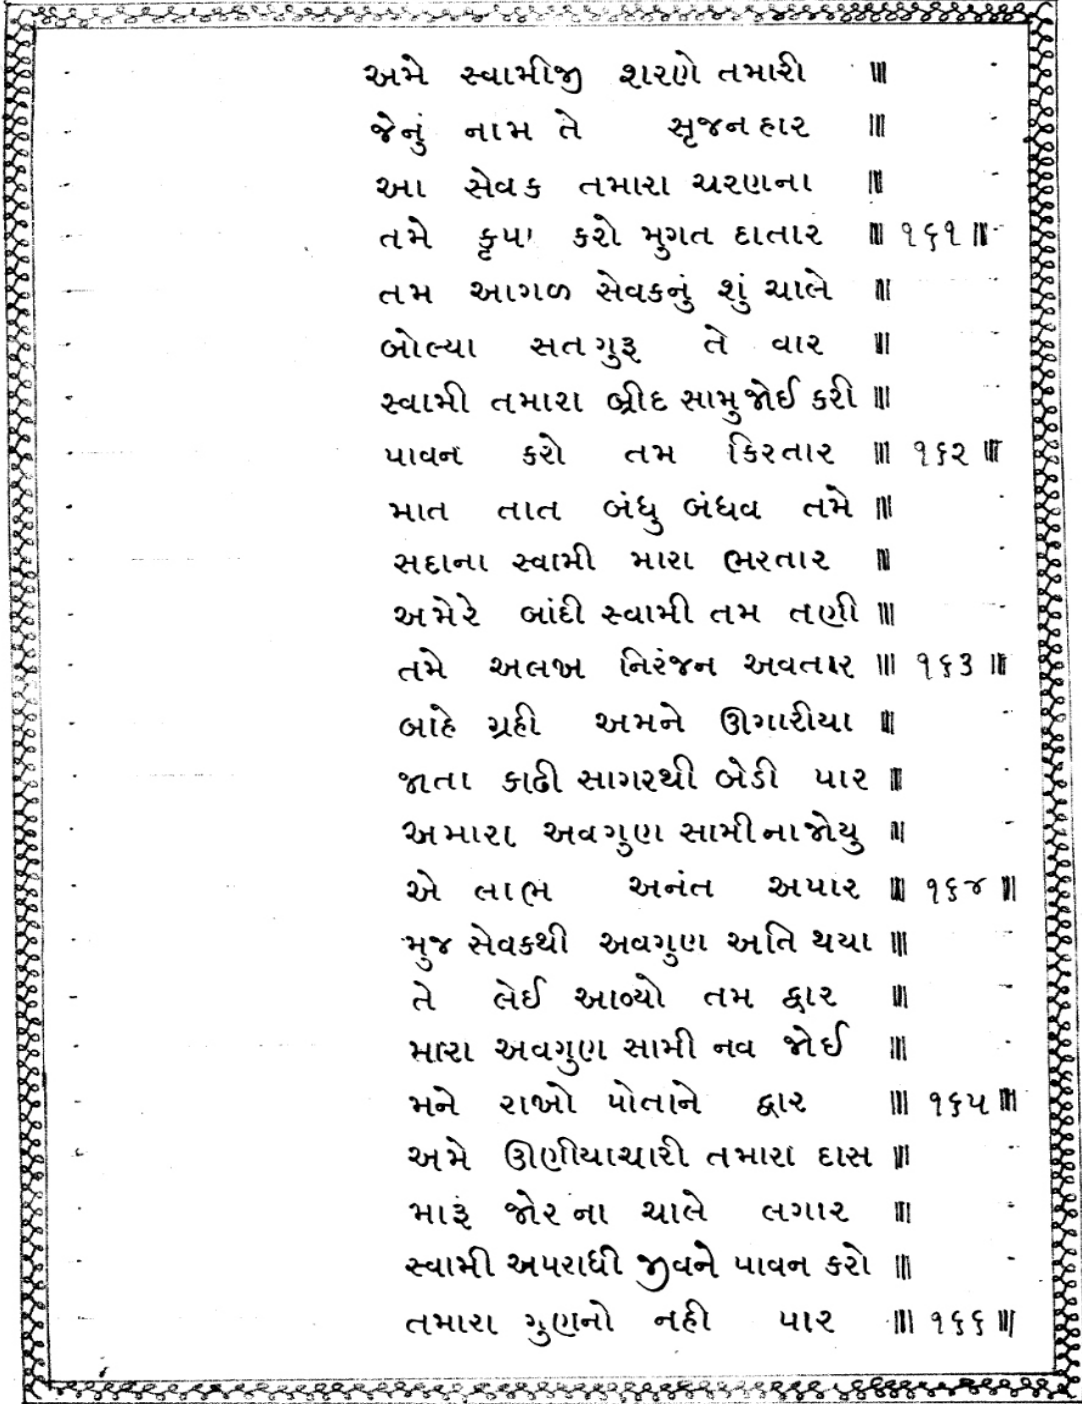 અમે સ્વામીજી શરણે તમારી ॥
જેનું નામ તે સૃજનહાર ॥
આ સેવક તમારા ચરણના ॥
તમે કૃપા કરો મુગત દાતાર ॥ ૧૬૧ ॥
તમ આગળ સેવકનું શું ચાલે ॥
બોલ્યા સતગુરૂ તે વાર ॥
સ્વામી તમારા બ્રીદ સામુ જોઈ કરી ॥
પાવન કરો તમ કિરતાર ॥ ૧૬૨ ॥
માત તાત બંધુ બંધવ તમે ॥
સદાના સ્વામી મારા ભરતાર ॥
અમેરે બાંદી સ્વામી તમ તણી ॥
તમે અલખ નિરંજન અવતાર ॥ ૧૬૩ ॥
બાંહે ગ્રહી અમને ઊગારીયા ॥
જાતા કાઢી સાગરથી બેડી પાર ॥
અમારા અવગુણ સામી ના જોયુ ॥
એ લાભ અનંત અપાર ॥ ૧૬૪ ॥
મુજ સેવકથી અવગુણ અતિ થયા ॥
તે લેઈ આવ્યો તમ દ્વાર ॥
મારા અવગુણ સામી નવ જોઈ ॥
મને રાખો પોતાને દ્વાર ॥ ૧૬૫ ॥
અમે ઊણીયાચારી તમારા દાસ ॥
મારૂં જોર ના ચાલે લગાર ॥
સ્વામી અપરાધી જીવને પાવન કરો ॥
તમારા ગુણનો નહી પાર ॥ ૧૬૬ ॥